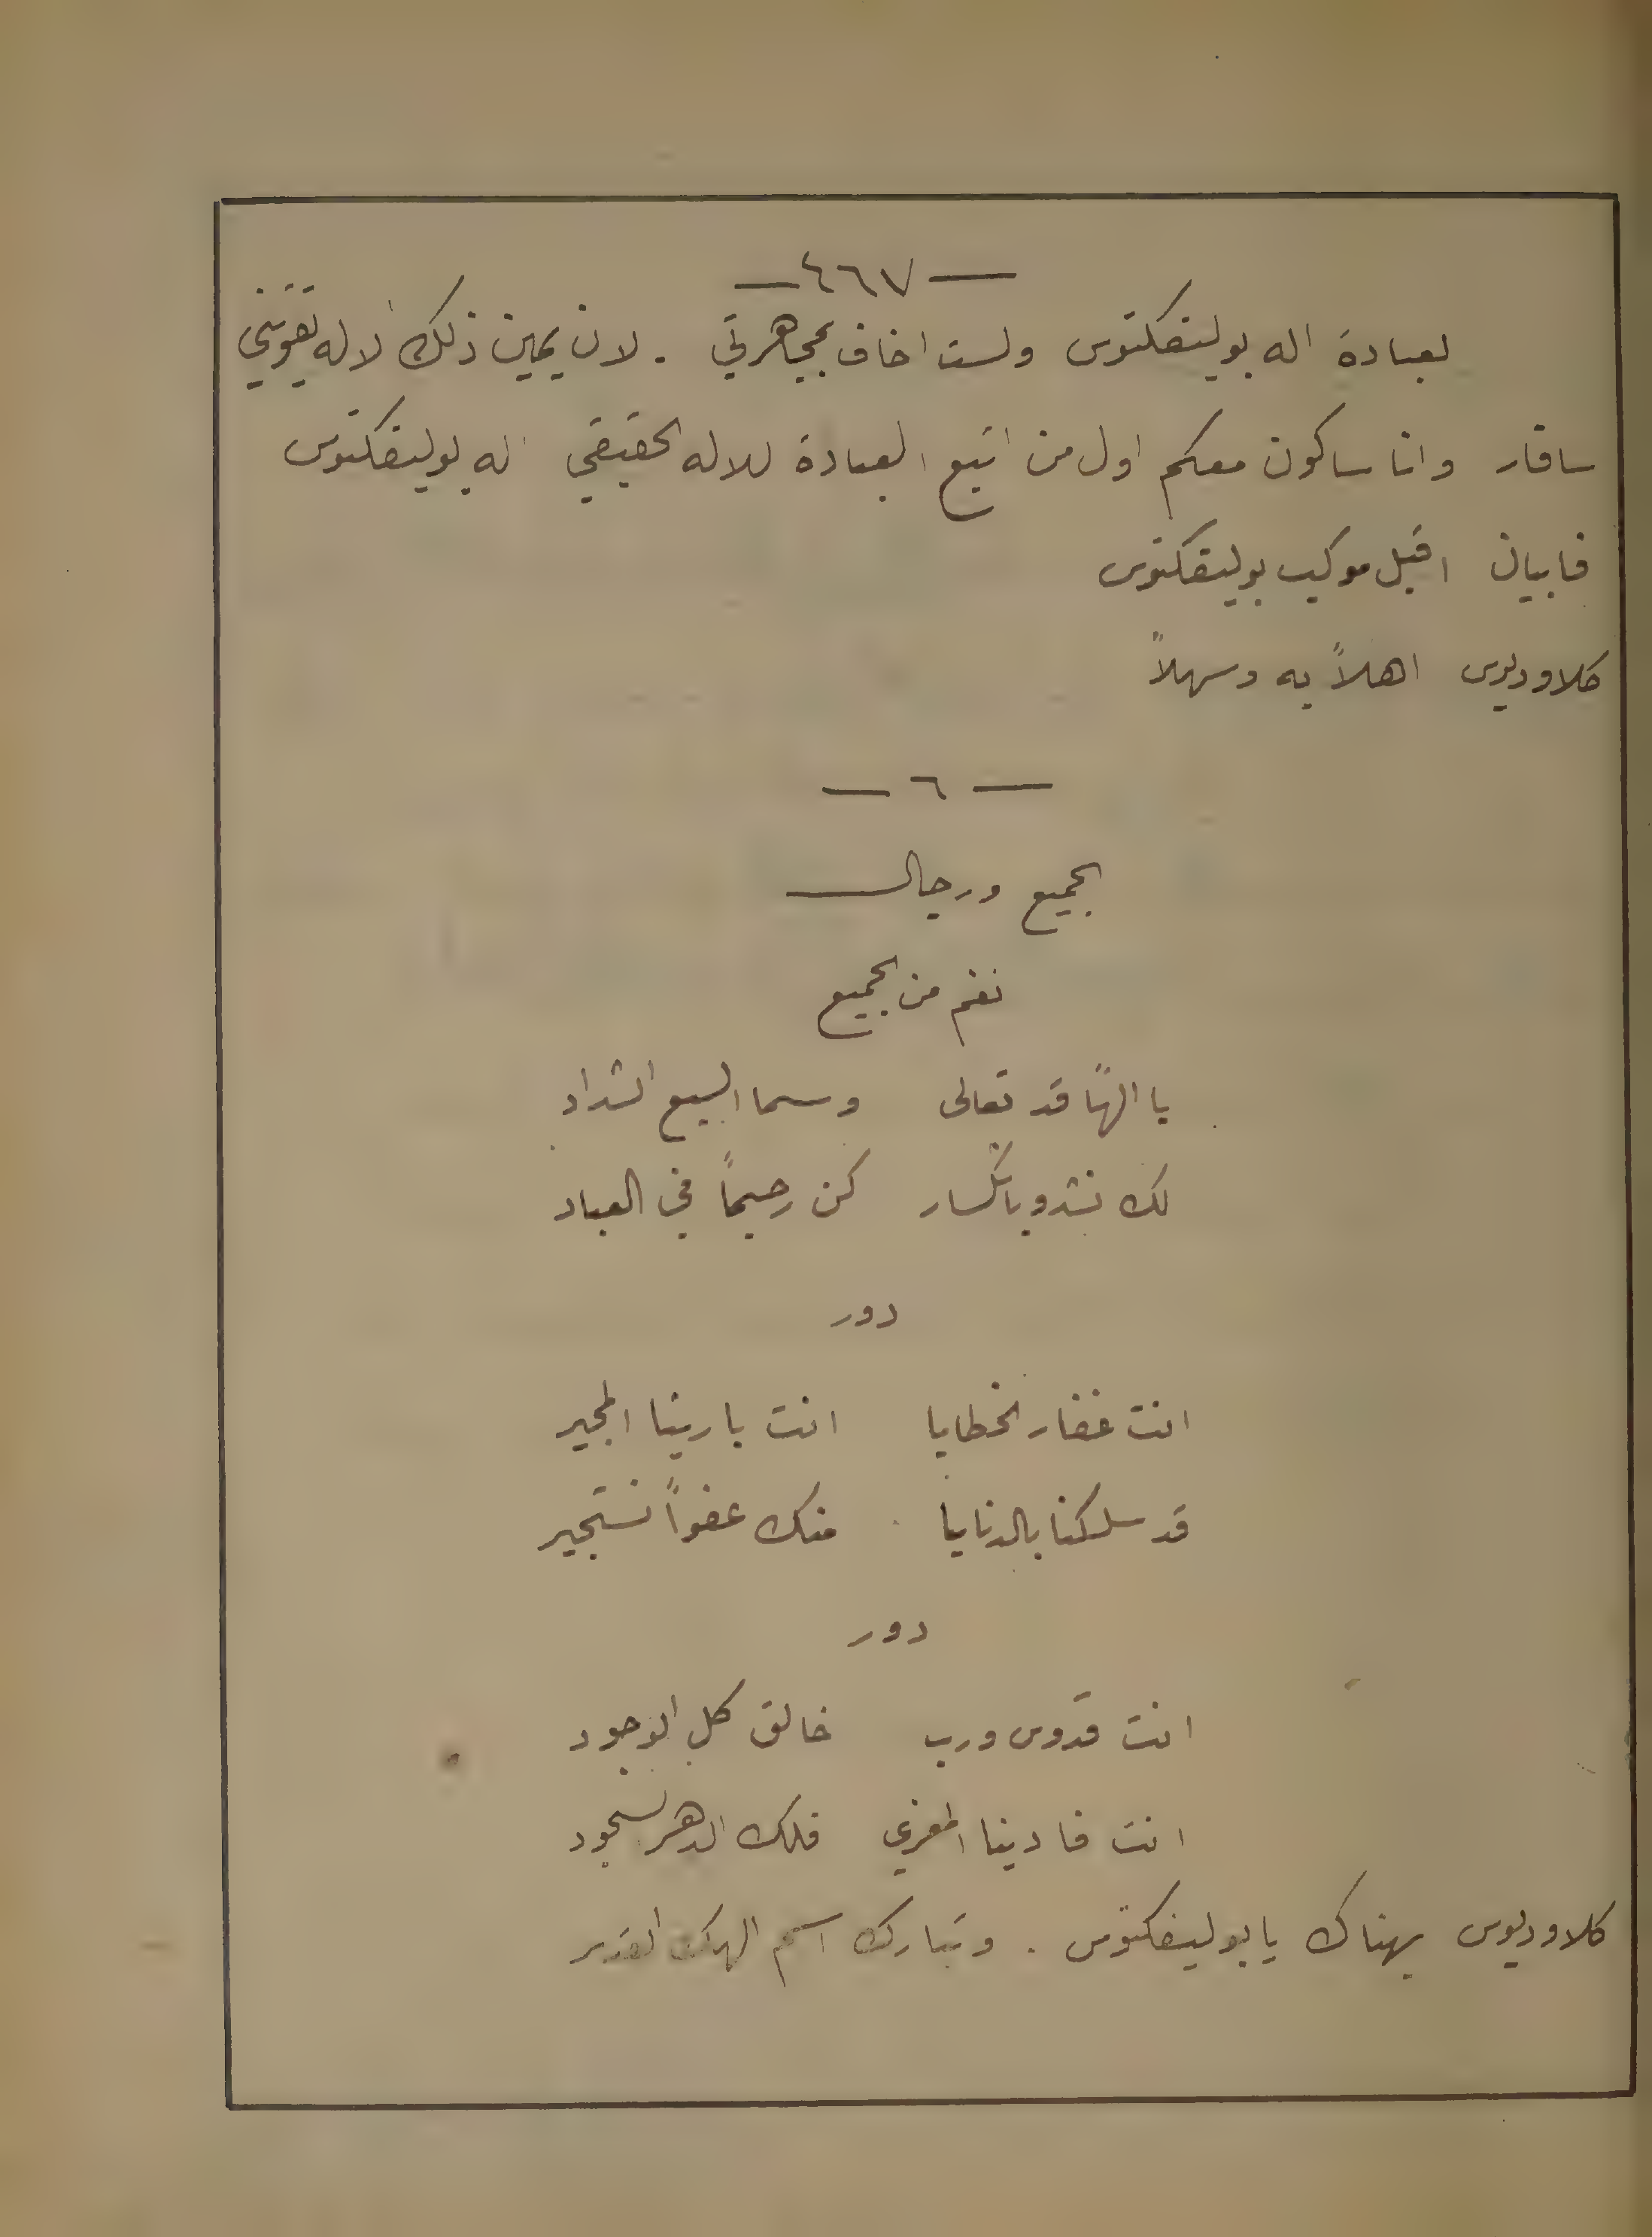 — ٤٦٧ —
لعبادة اله بوليتفكتوس ولست اخاف بمجاهرتي . لان يمين ذلك الاله تقوّيني
سافار وانا ساكون معكم اول من اتبع العبادة للاله الحقيقي اله بوليتفكتوس
فابيان اقبل موكب بوليتفكتوس
كلاوديوس اهلاً به وسهلاً
— ٦ —
الجميع ورجال
نغم من الجميع
يا الهًا قد تعالى وسما السبع الشداد
لك نشدو بانكسار كن رحيمًا في العباد
دور
انت غفار الخطايا انت بارينا المجير
قد سلكنا بالدنايا منك عفوًا نستجير
دور
انت قدّوس ورب خالق كل الوجود
انت فادينا المعزي فلك الدهر السجود
كلاوديوس بهناك يا بوليتفكتوس . وتبارك اسم الهك القدير